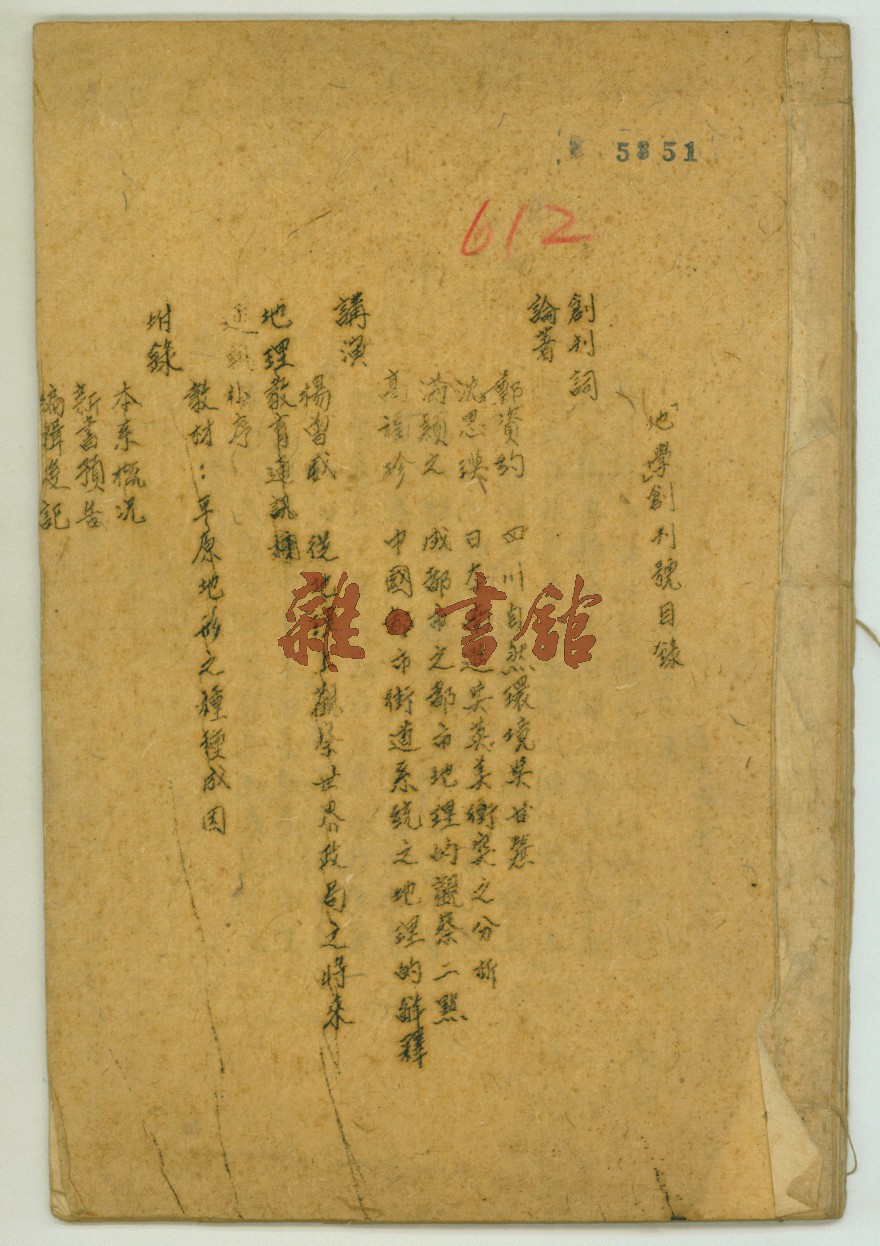 5351
612
「地學」創刊號目錄
創刊詞
論著
鄭資約 四川自然環境與甘蔗
沈思璵 日本 與英美衝突之分析
滿穎之 成都市之都市地理的觀察二點
高詒珍 中國都市街道系統之地理的解釋
講演
楊曾威 從地 上觀察世界政局之將來
地理教育通訊欄
通訊小序
教材：草原地形之種種成因
坿錄
本系概况
新書預告
編輯後記
雜·書舘